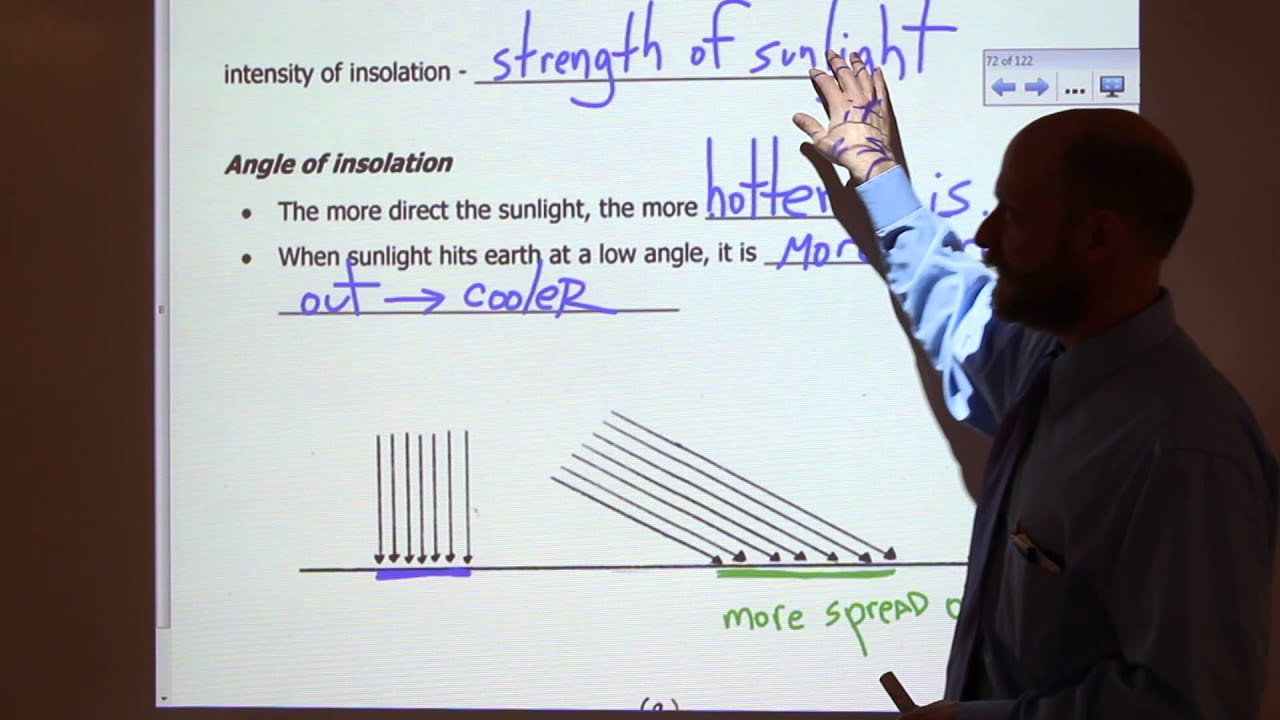 intensity of insolation - strength of sunlight
72 of 122
...
Angle of insolation
• The more direct the sunlight, the more hotter is.
• When sunlight hits earth at a low angle, it is
out → cooler
more spread